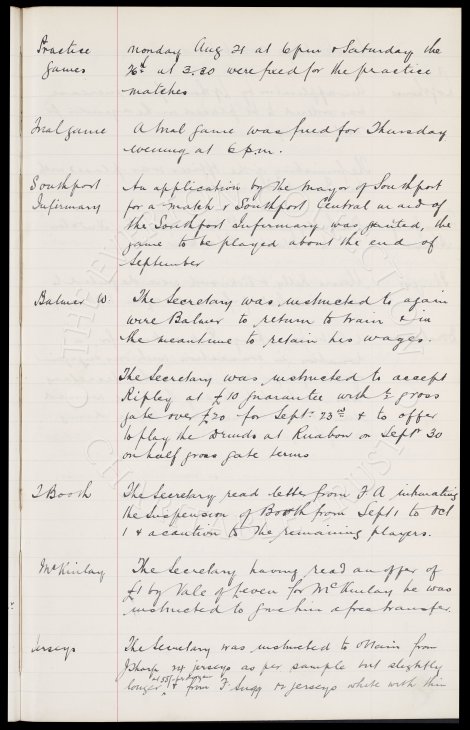 Practice Games
Monday Aug 21 at 6pm & Saturday the
26th at 3.30 were fixed for the practice
matches
Trial game
A trial game was fixed for Thursday
evening at 6 p.m.
Southport Infirmary
An application by the Mayor of Southport
for a match v Southport Central in aid of
the Southport Infirmary was granted, the
game to be played about the end of
September
Balmer W.
The Secretary was instructed to again
wire Balmer to return to train & in
the meantime to retain his wages.
The Secretary was instructed to accept
Ripley at £10 guarantee with ½ gross
gate over £20 for Sept. 23rd & to offer
to play the Druids at Ruabon on Sept 30
on half gross gate terms
J Booth
The Secretary read letter from F A intimating
the suspension of Booth from Sept 1 to Oct
1 & a caution to the remaining players.
McKinlay
The Secretary having read an offer of
£1 by Vale of Leven for McKinlay he was
instructed to give him a free transfer.
Jerseys
The Secretary was instructed to obtain from
J Sharp 24 jerseys as per sample but slightly
longer & from F Sugg 12 jerseys white with thin